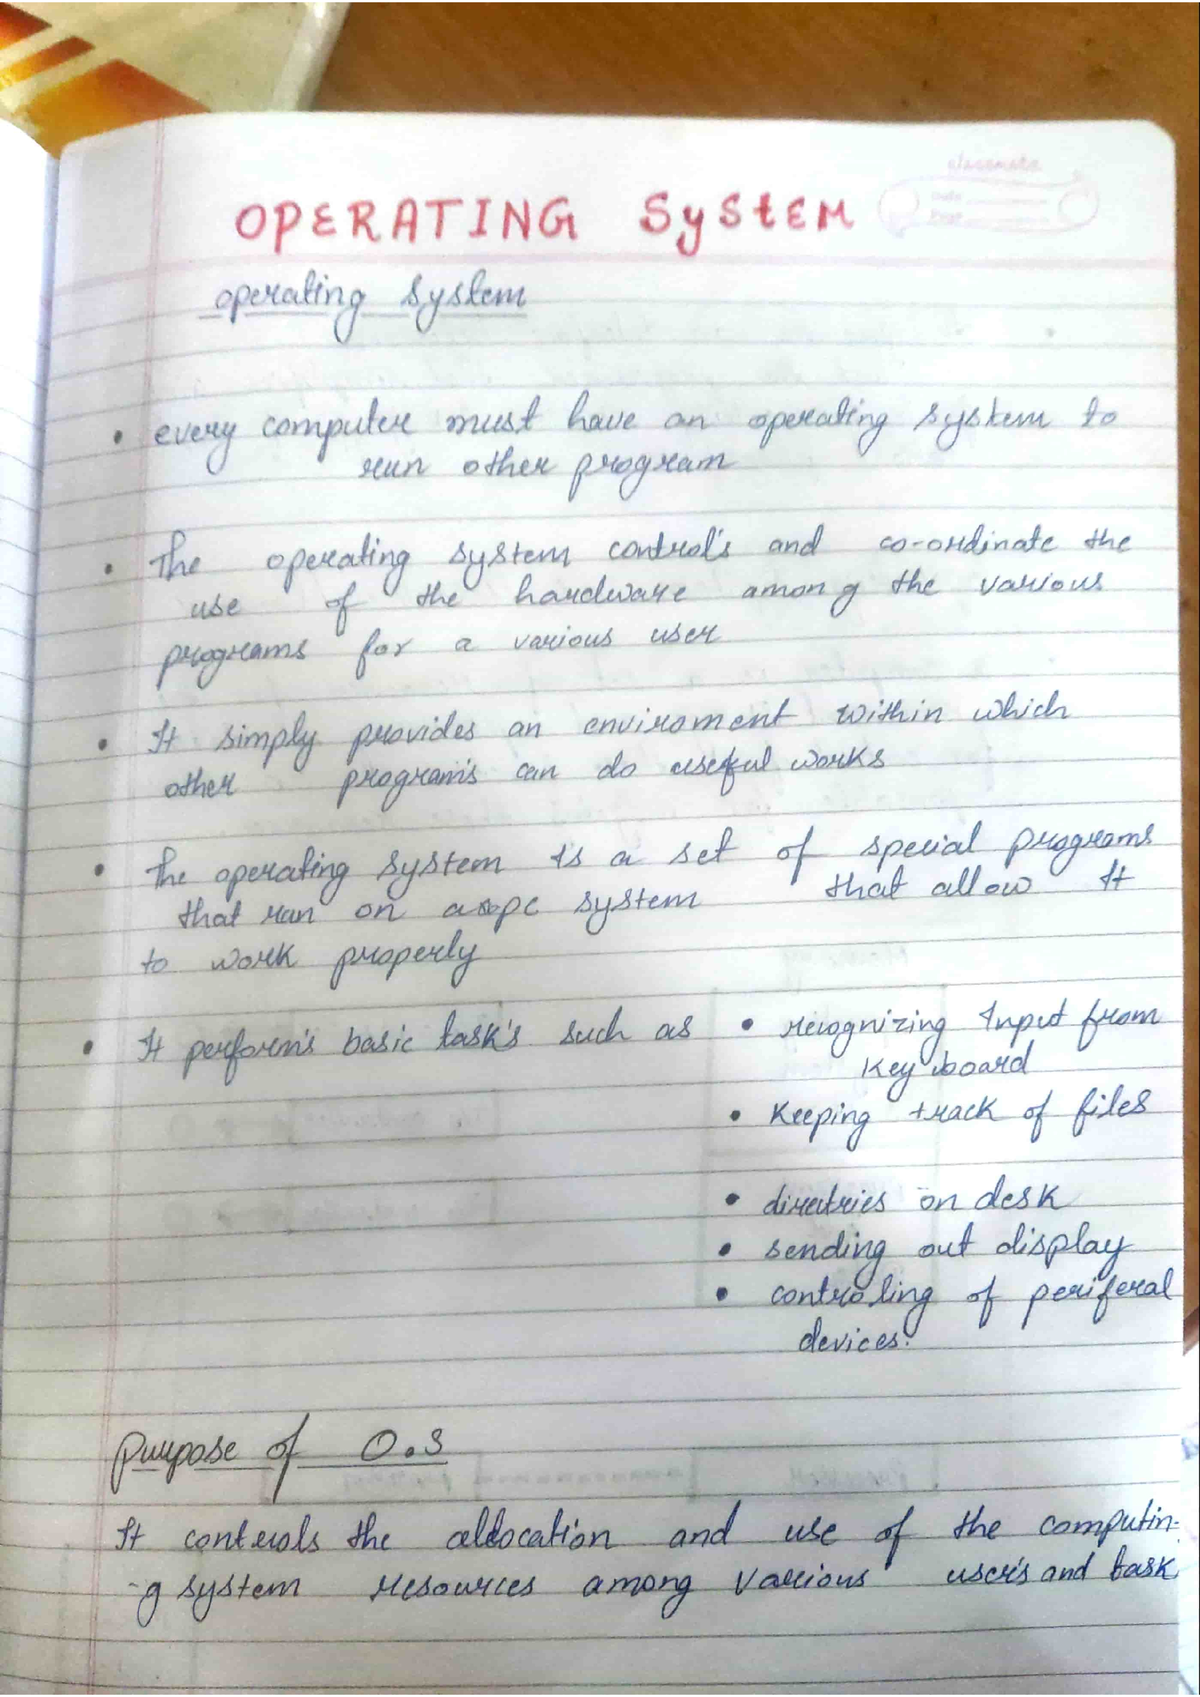 classmate
Date
Page
OPERATING SyStEM
operating system
• every computer must have an operating system to
run other program
• The operating system control's and co-ordinate the
use of the hardware among the various
programs for a various user
• It simply provides an enviroment within which
other program's can do useful works
• The operating system is a set of special programs
that run on a pc system that allow It
to work properly
• It perform's basic task's such as • recognizing Input from
Key board
• Keeping track of files
• directries on desk
• sending out display
• controling of periferal
devices.
Purpose of O.S
It controls the allocation and use of the computin-
-g system resources among various user's and task